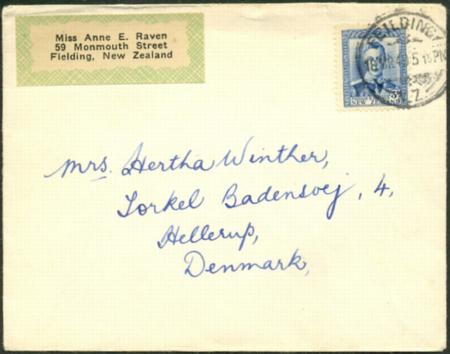 Miss Anne E. Raven
59 Monmouth Street
Fielding, New Zealand
FEILDING
5 15 PM
N.Z.
Mrs. Hertha Winther,
Torkel Badensvej, 4,
Hellerup,
Denmark,